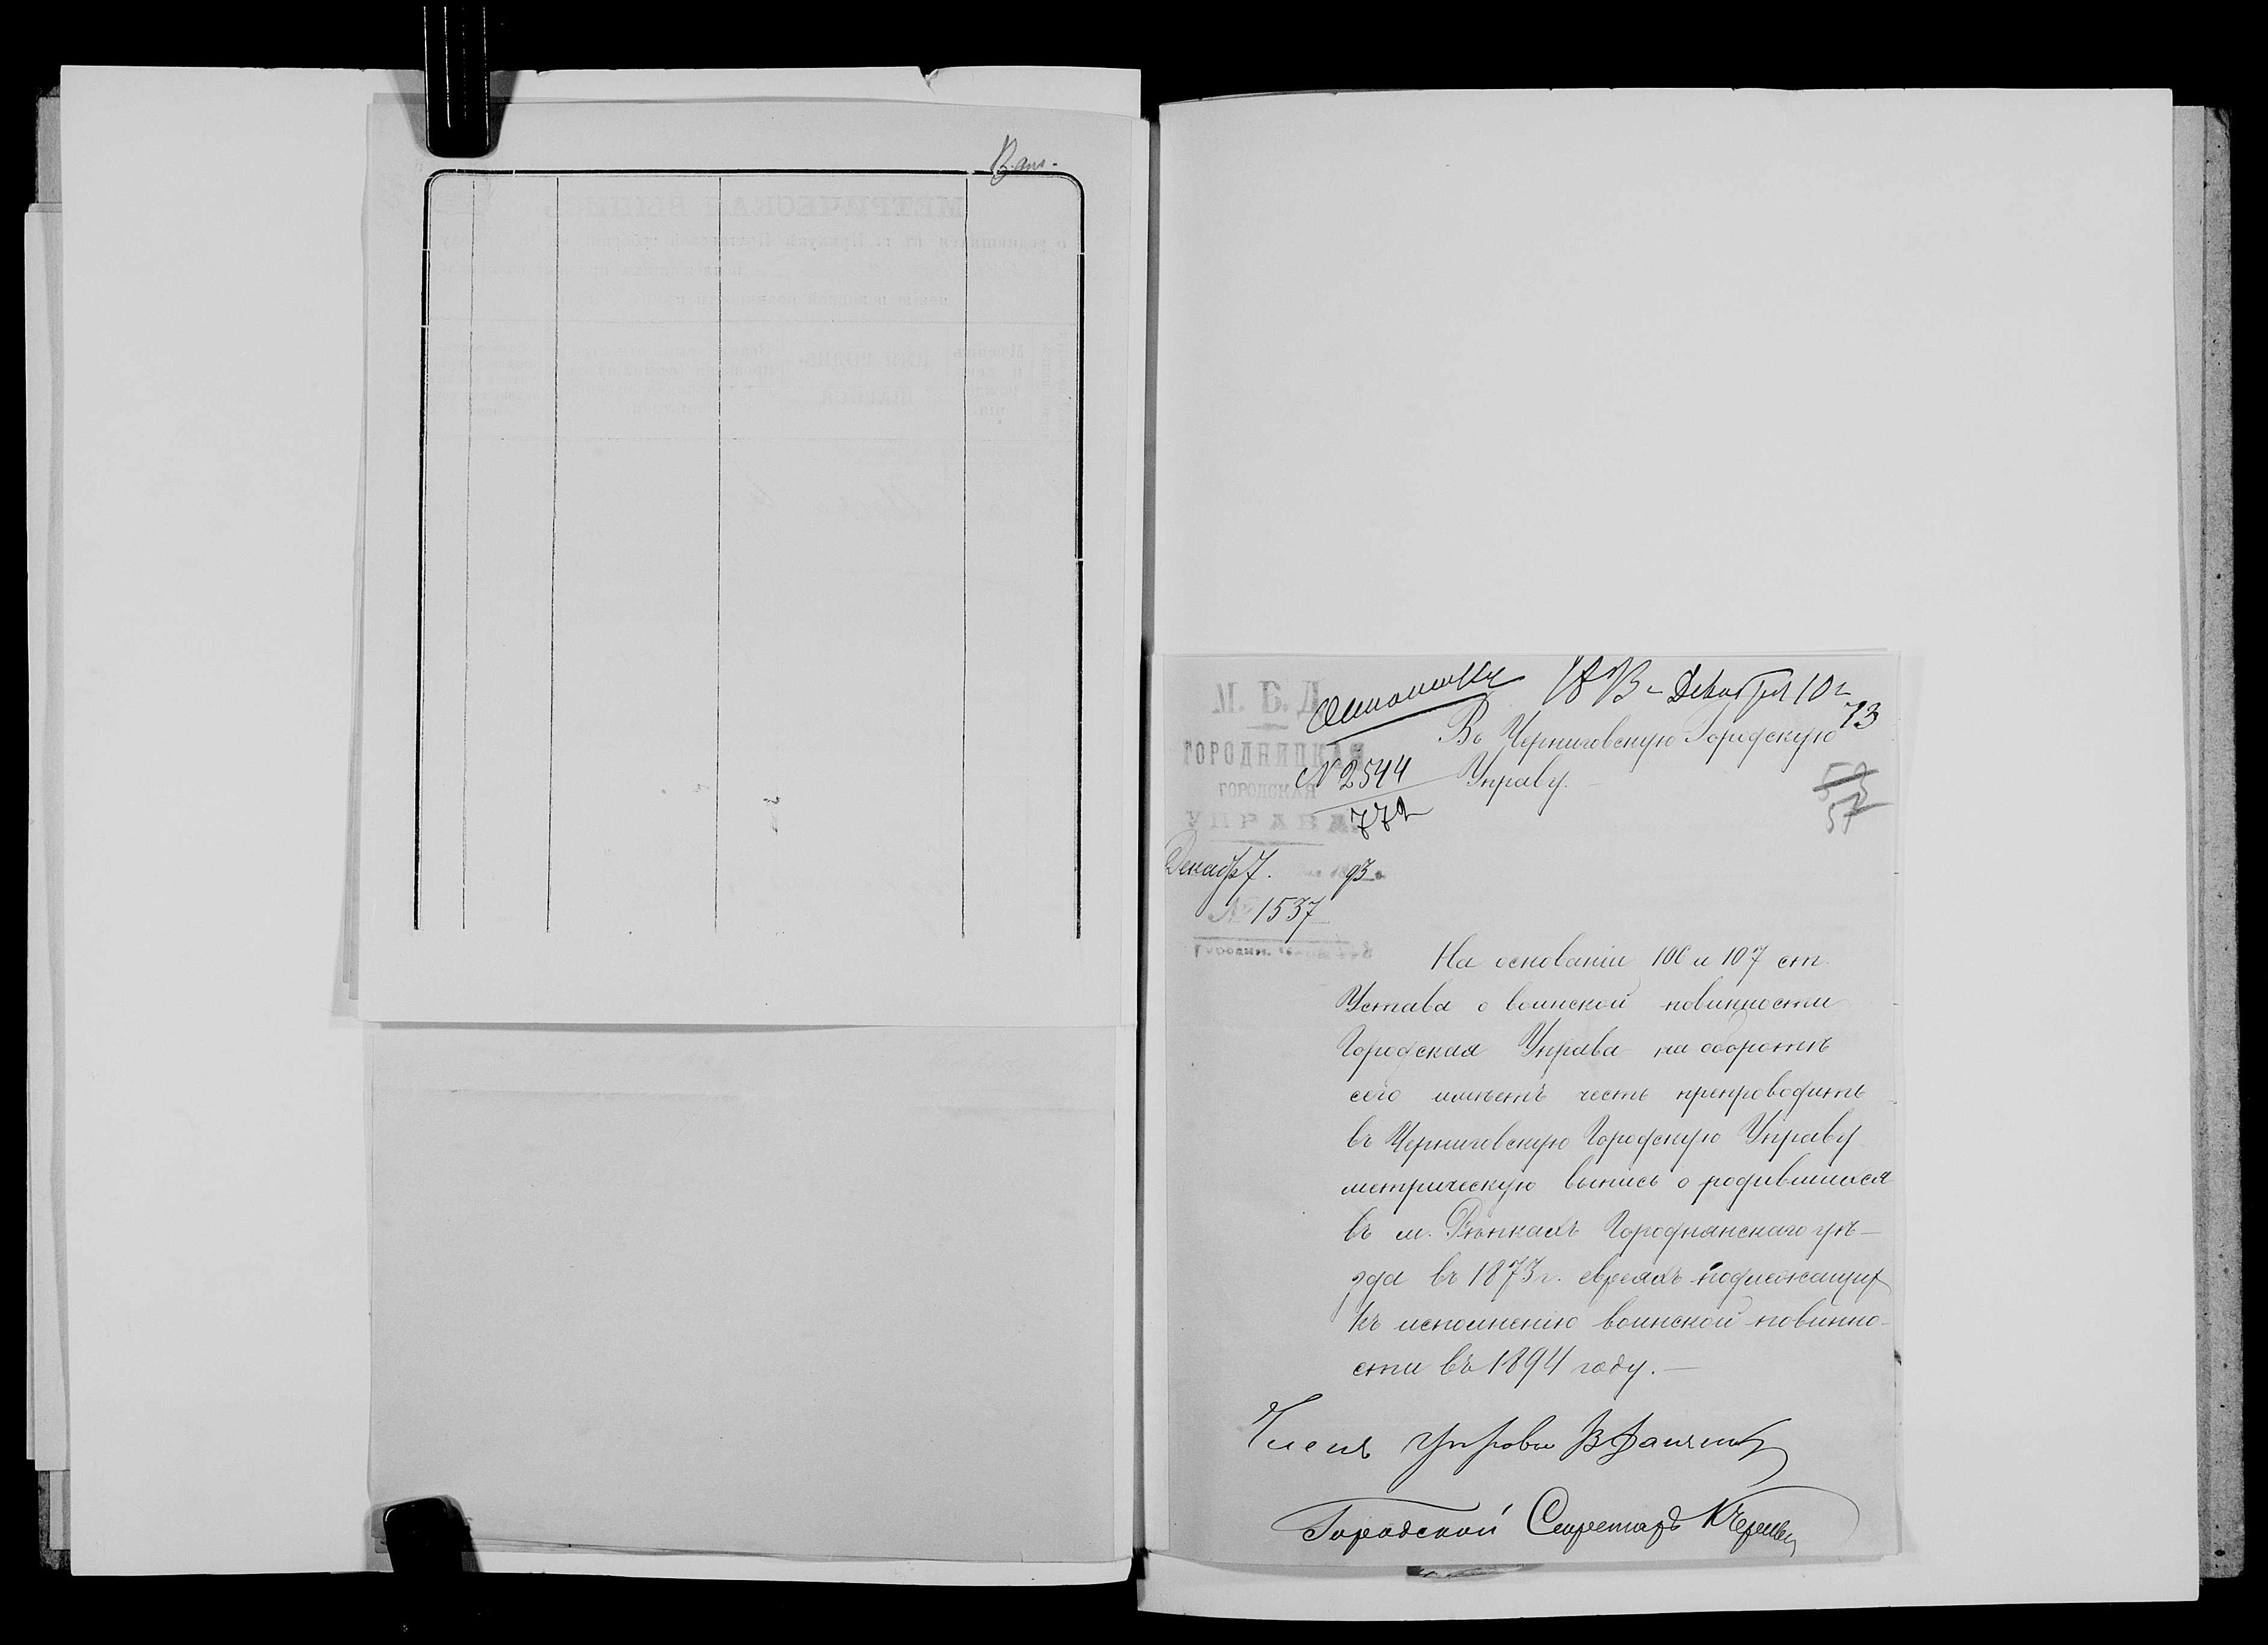 М. В. Д.
ГОРОДНИЦКАЯ
ГОРОДСКАЯ
УПРАВА.
Декабр. 7. 93 г.
№ 1537
Декабря 10 г.
73
Въ Черниговскую Городскую
Управу.
№ 2544
772
53
57
На основаніи 106 и 107 ст.
Устава о воинской повинности
Городская Управа на оборотѣ
сего имѣетъ честь препроводить
въ Черниговскую Городскую Управу
метрическую выпись о родившихся
въ м. Рѣпкахъ Городнянскаго уѣ-
зда въ 1873 г. евреяхъ подлежащих
къ исполненію воинской повинно-
сти въ 1894 году.—
Членъ Управы
Городской Секретарь